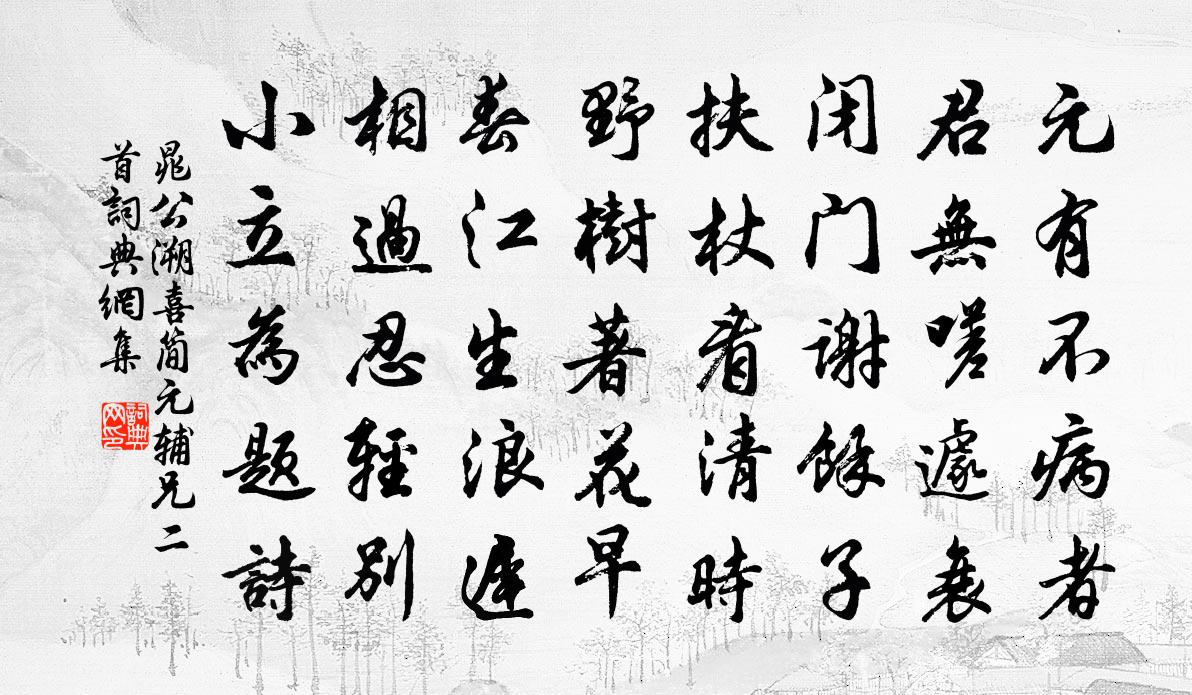 元有不病者
君無嗟遽衰
闭门謝餘子
扶杖看清時
野樹著花早
春江生浪遲
相過忍輕別
小立為題詩
晁公溯喜简元辅兄二
首詞典網集
詞典网印